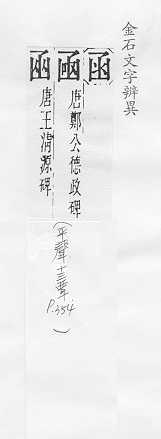 金石文字辨異
函
凾唐鄭公德政碑
圅唐王清源碑
(平聲十三覃
P.354)